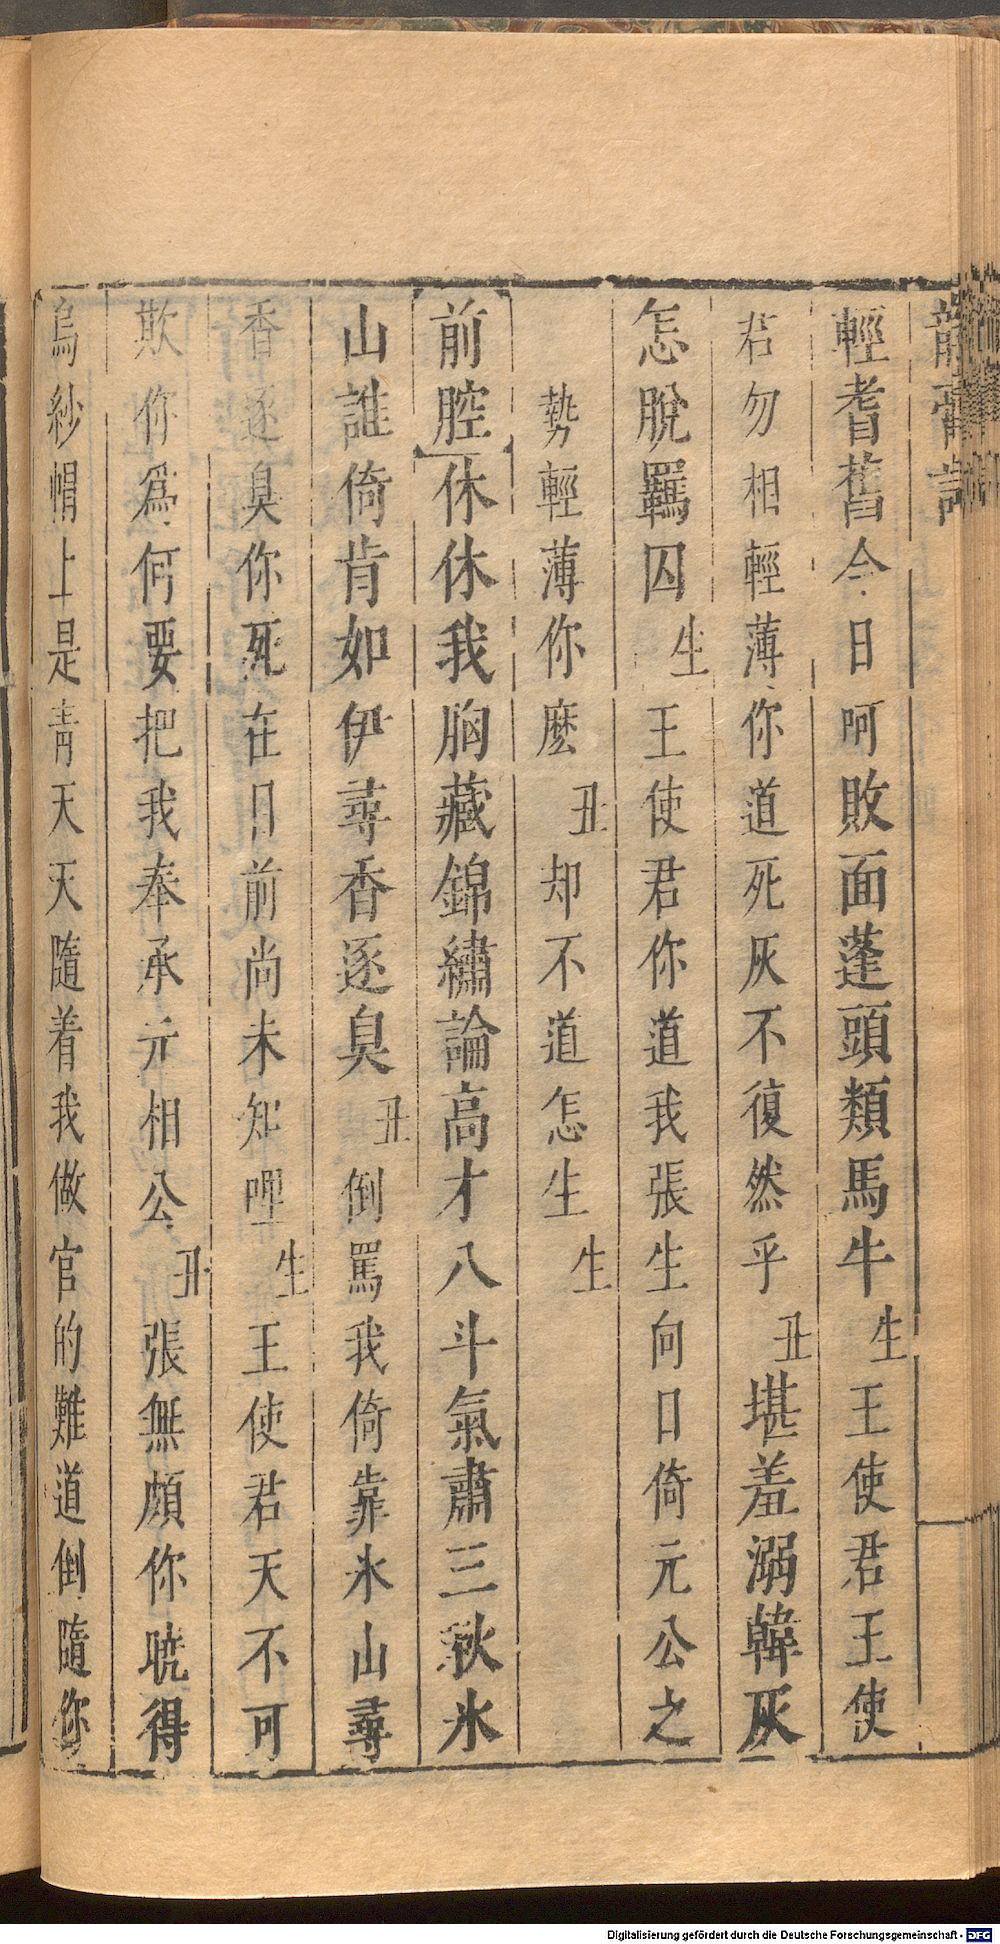 龍膏記
輕耆舊今日呵敗面蓬頭類馬牛生王使君王使
君勿相輕薄你道死灰不復然乎丑堪羞溺韓灰
怎脫羈囚生王使君你道我張生向日倚元公之
勢輕薄你麽丑却不道怎生生
前腔休休我胸藏錦繡論高才八斗氣肅三秋氷
山誰倚肯如伊尋香逐臭丑倒罵我倚靠氷山尋
香逐臭你死在日前尚未知哩生王使君天不可
欺你爲何要把我奉承元相公丑張無頗你曉得
烏紗帽上是靑天天隨着我做官的難道倒隨你
Digitalisierung gefördert durch die Deutsche Forschungsgemeinschaft - DFG